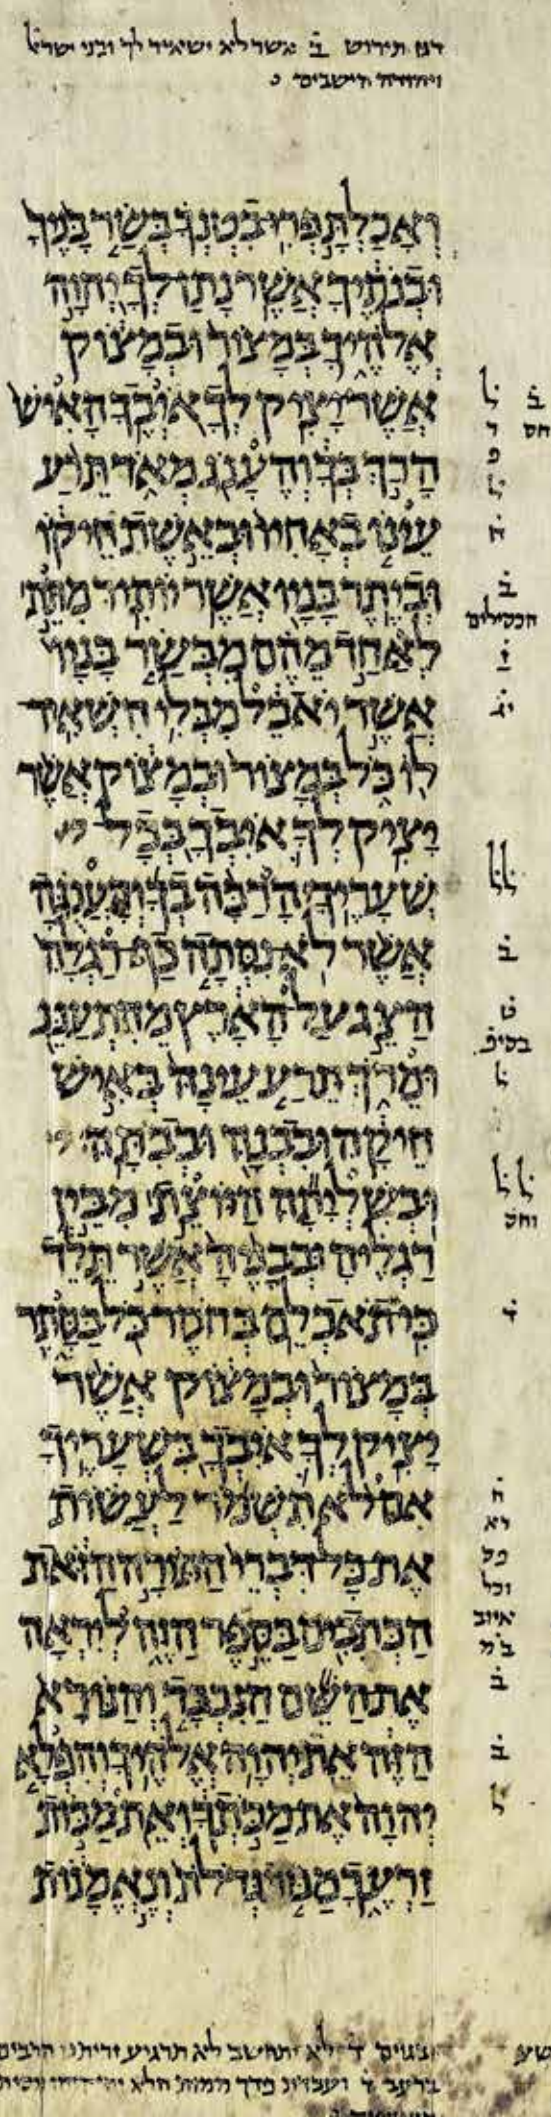 דגן תירוש ב̇ אשר לא ישאיר לך ובני ישראל
ויהודה הישבים
וְאָכַלְתָּ פְרִי בִטְנְךָ בְּשַׂר בָּנֶיךָ
וּבְנֹתֶיךָ אֲשֶׁר נָתַן לְךָ יְהוָה
אֱלֹהֶיךָ בְּמָצוֹר וּבְמָצוֹק
אֲשֶׁר יָצִיק לְךָ אֹיְבֶךָ הָאִישׁ
הָרַךְ בְּךָ וְהֶעָנֹג מְאֹד תֵּרַע
עֵינוֹ בְאָחִיו וּבְאֵשֶׁת חֵיקוֹ
וּבְיֶתֶר בָּנָיו אֲשֶׁר יוֹתִיר מִתֵּת
לְאַחַד מֵהֶם מִבְּשַׂר בָּנָיו
אֲשֶׁר יֹאכֵל מִבְּלִי הִשְׁאִיר
לוֹ כֹּל בְּמָצוֹר וּבְמָצוֹק אֲשֶׁר
יָצִיק לְךָ אֹיִבְךָ בְּכָל
שְׁעָרֶיךָ הָרַכָּה בְךָ וְהָעֲנֻגָּה
אֲשֶׁר לֹא נִסְּתָה כַף רַגְלָהּ
הַצֵּג עַל הָאָרֶץ מֵהִתְעַנֵּג
וּמֵרֹךְ תֵּרַע עֵינָהּ בְּאִישׁ
חֵיקָהּ וּבִבְנָהּ וּבְבִתָּהּ
וּבְשִׁלְיָתָהּ הַיּוֹצֵת מִבֵּין
רַגְלֶיהָ וּבְבָנֶיהָ אֲשֶׁר תֵּלֵד
כִּי תֹאכְלֵם בְּחֹסֶר כֹּל בַּסָּתֶר
בְּמָצוֹר וּבְמָצוֹק אֲשֶׁר
יָצִיק לְךָ אֹיִבְךָ בִּשְׁעָרֶיךָ
אִם לֹא תִשְׁמֹר לַעֲשׂוֹת
אֶת כָּל דִּבְרֵי הַתּוֹרָה הַזֹּאת
הַכְּתֻבִים בַּסֵּפֶר הַזֶּה לְיִרְאָה
אֶת הַשֵּׁם הַנִּכְבָּד וְהַנּוֹרָא
הַזֶּה אֵת יְהוָה אֱלֹהֶיךָ וְהִפְלָא
יְהוָה אֶת מַכֹּתְךָ וְאֵת מַכּוֹת
זַרְעֶךָ מַכּוֹת גְּדֹלֹת וְנֶאֱמָנוֹת
ב̇
חס
ל̇
ד
פ
ל̇
ח̇
ב̇
הכסילים
ז̇
יג̇
ל̇ ל̇
ב̇
ט̇
בסיפ̇
ל̇
ל̇ ל̇
וחס
ד̇
ח̇
רא
פס
וכל
איוב
במ
ב̇
ב̇
ל̇
לא יתחשב לא תרגיע